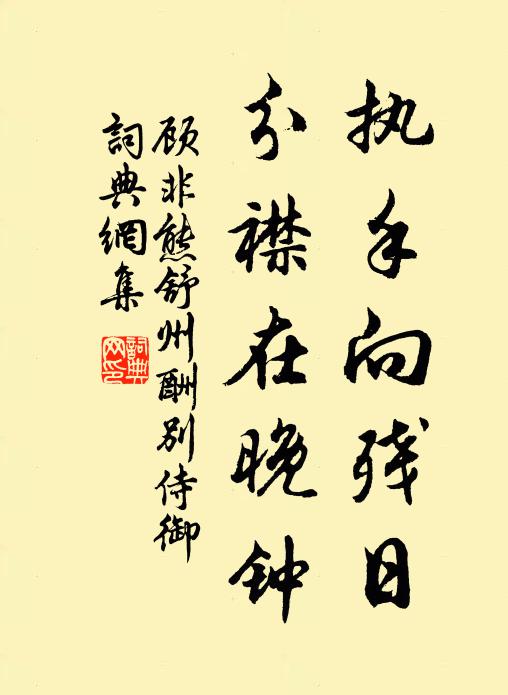 执手向残日
分襟在晚钟
顾非熊舒州酬别侍御
詞典網集
詞典网印